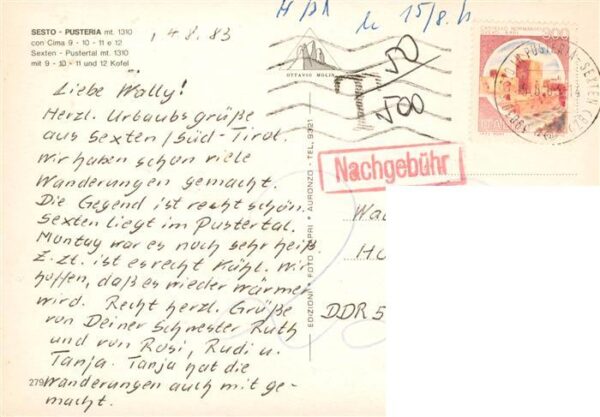 SESTO - PUSTERIA mt. 1310
con Cima 9 - 10 - 11 e 12
Sexten - Pustertal mt. 1310
mit 9 - 10 - 11 und 12 Kofel
14.8.83
Liebe Wally!
Herzl. Urlaubsgrüße
aus Sexten / Süd-Tirol.
Wir haben schon viele
Wanderungen gemacht.
Die Gegend ist recht schön.
Sexten liegt im Pustertal.
Montag war es noch sehr heiß
z. zt. ist es recht kühl. Wir
hoffen, daß es wieder wärmer
wird. Recht herzl. Grüße
von Deiner Schwester Ruth
und von Rosi, Rudi u.
Tanja. Tanja hat die
Wanderungen auch mit ge-
macht.
279
EDIZIONI * FOTO
AURONZO - TEL. 9321
15/8.
T
50
500
Nachgebühr
DDR 5